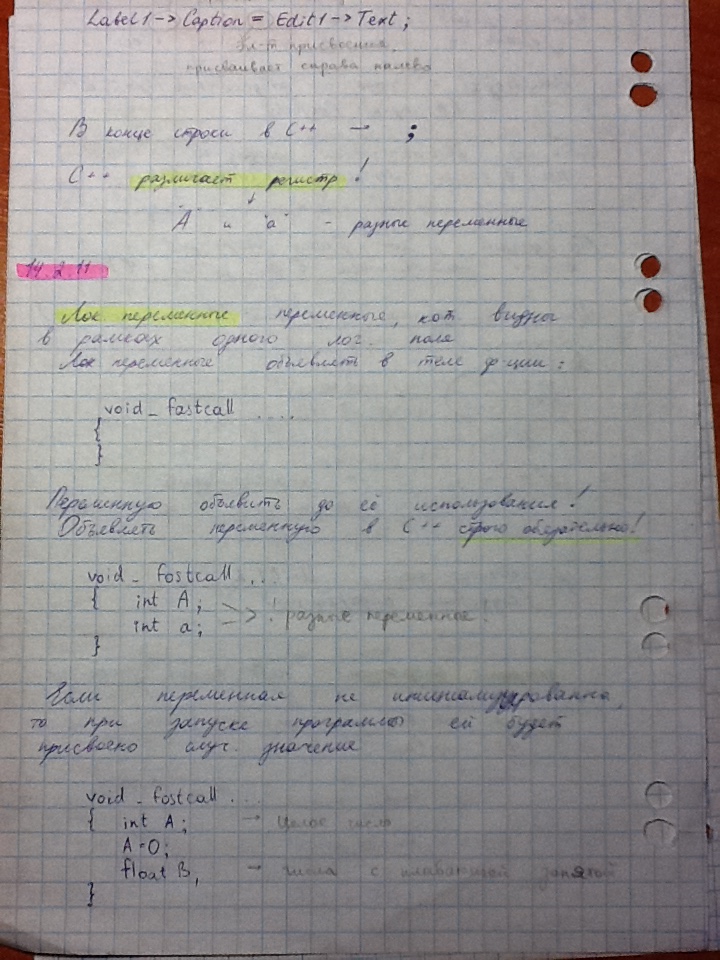 Label1->Caption = Edit1->Text;
эл-т присвоения,
присваивает справа налево
В конце строки в C++ → ;
C++ различает регистр!
"A" и "a" - разные переменные
14.2.11
Лок. переменные переменные, кот видны
в рамках одного лог. поля
Лок переменные объявлять в теле ф-ции:
void_fastcall ....
{
}
Переменную объявить до её использования!
Объявлять переменную в C++ строго обязательно!
void_fostcall ...
{ int A;
int a; >> ! разные переменные!
}
Если переменная не инициализированна,
то при запуске программы ей будет
присвоено случ. значение
void_fostcall ...
{ int A; → Целое число
A=0;
float B, → числа с плавающей запятой
}